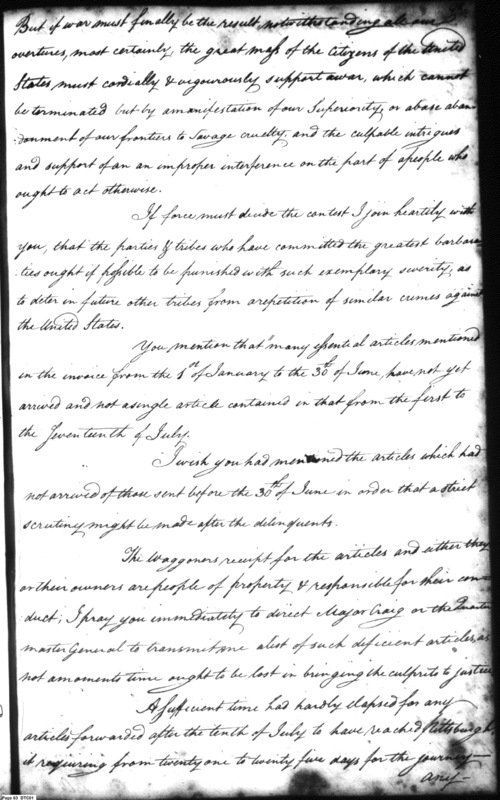 But if war must finally be the result, notwithstanding all our
overtures, most certainly, the great mass of the Citizens of the United
States, must cordially & vigourously support a war, which cannot
be terminated but by a manifestation of our Superiority, or a base aban
-donment of our frontiers to Savage cruelty, and the culpable intrigues
and support of an an improper interference on the part of a people who
ought to act otherwise.
If force must decide the contest I join heartily with
you, that the parties & tribes who have committed the greatest barbara
-ties ought if possible to be punished with such exemplary severity, as
to deter in future other tribes from a repetition of similar crimes against
the United States.
You mention that "many essential articles mentioned
in the invoice from the 1st of January to the 30th of June, have not yet
arrived and not a single article contained in that from the first to
the Seventeenth of July."
I wish you had mentioned the articles which had
not arrived of those sent before the 30th of June in order that a strict
scrutiny might be made after the delinquents.
The Waggoners receipt for the articles and either they
or their owners are people of property & responsible for their con-
duct; I pray you immediately to direct Major Craig or the Quarter
master General to transmit me a list of such deficient articles, as
not a moments time ought to be lost in bringing the culprits to justice
A Sufficient time had hardly elapsed for any
articles forwarded after the tenth of July to have reached Pittsburgh,
it requiring from twenty one to twenty five days for the journey—
any—
Page 83 DTC01